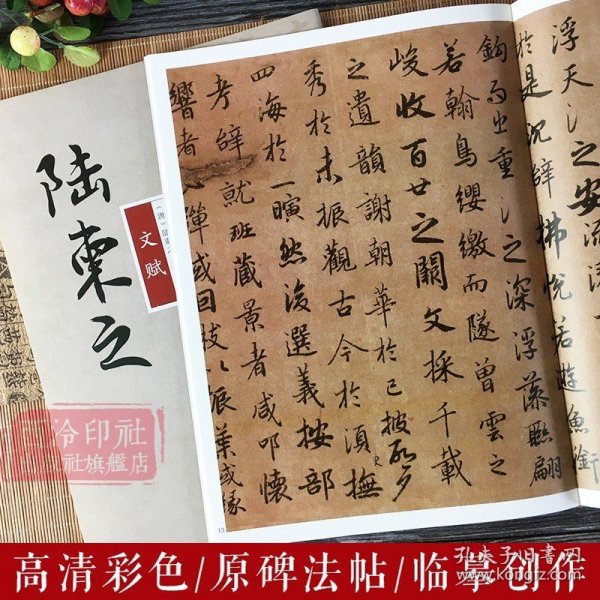 浮天之安流
於是沉辭拂悅若遊魚銜
鈎而出重之深浮藻聯翩
若翰鳥纓繳而墜曾雲之
峻收百世之闕文採千載
之遺韻謝朝華於已披夕
秀於未振觀古今於須撫
四海於一然後選義按部
考辭就班藏景者咸叩懷
響者彈或因枝以振葉或緣
13
陸柬之
文赋
泠印社
社旗艦店
高清彩色/原碑法帖/临摹创作
孔夫子旧书网
www.kongfz.com